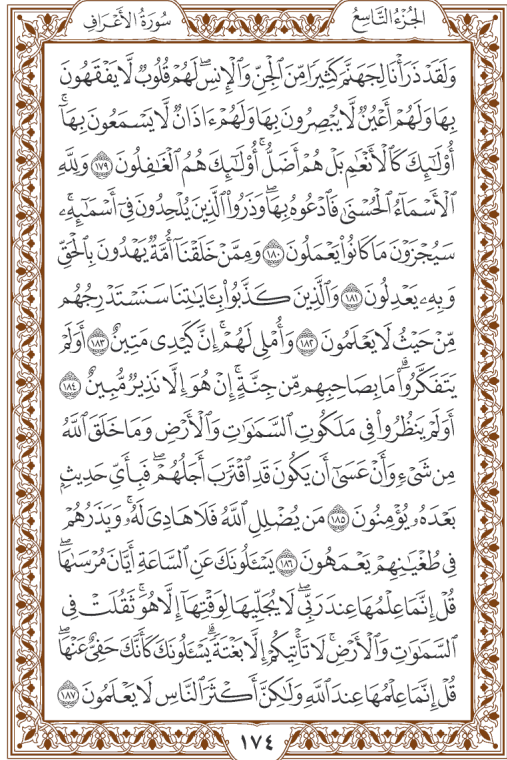 الجُزْءُ التَّاسِعُ
سُورَةُ الأَعْرَافِ
وَلَقَدْ ذَرَأْنَا لِجَهَنَّمَ كَثِيرًا مِّنَ ٱلْجِنِّ وَٱلْإِنسِۖ لَهُمْ قُلُوبٌ لَّا يَفْقَهُونَ
بِهَا وَلَهُمْ أَعْيُنٌ لَّا يُبْصِرُونَ بِهَا وَلَهُمْ ءَاذَانٌ لَّا يَسْمَعُونَ بِهَآۚ
أُو۟لَٰٓئِكَ كَٱلْأَنْعَٰمِ بَلْ هُمْ أَضَلُّۚ أُو۟لَٰٓئِكَ هُمُ ٱلْغَٰفِلُونَ ١٧٩ وَلِلَّهِ
ٱلْأَسْمَآءُ ٱلْحُسْنَىٰ فَٱدْعُوهُ بِهَاۖ وَذَرُوا۟ ٱلَّذِينَ يُلْحِدُونَ فِىٓ أَسْمَٰٓئِهِۦۚ
سَيُجْزَوْنَ مَا كَانُوا۟ يَعْمَلُونَ ١٨٠ وَمِمَّنْ خَلَقْنَآ أُمَّةٌ يَهْدُونَ بِٱلْحَقِّ
وَبِهِۦ يَعْدِلُونَ ١٨١ وَٱلَّذِينَ كَذَّبُوا۟ بِـَٔايَٰتِنَا سَنَسْتَدْرِجُهُم
مِّنْ حَيْثُ لَا يَعْلَمُونَ ١٨٢ وَأُمْلِى لَهُمْۚ إِنَّ كَيْدِى مَتِينٌ ١٨٣ أَوَلَمْ
يَتَفَكَّرُوا۟ۗ مَا بِصَاحِبِهِم مِّن جِنَّةٍۚ إِنْ هُوَ إِلَّا نَذِيرٌ مُّبِينٌ ١٨٤
أَوَلَمْ يَنظُرُوا۟ فِى مَلَكُوتِ ٱلسَّمَٰوَٰتِ وَٱلْأَرْضِ وَمَا خَلَقَ ٱللَّهُ
مِن شَىْءٍ وَأَنْ عَسَىٰٓ أَن يَكُونَ قَدِ ٱقْتَرَبَ أَجَلُهُمْۖ فَبِأَىِّ حَدِيثٍۭ
بَعْدَهُۥ يُؤْمِنُونَ ١٨٥ مَن يُضْلِلِ ٱللَّهُ فَلَا هَادِىَ لَهُۥۚ وَيَذَرُهُمْ
فِى طُغْيَٰنِهِمْ يَعْمَهُونَ ١٨٦ يَسْـَٔلُونَكَ عَنِ ٱلسَّاعَةِ أَيَّانَ مُرْسَىٰهَاۖ
قُلْ إِنَّمَا عِلْمُهَا عِندَ رَبِّىۖ لَا يُجَلِّيهَا لِوَقْتِهَآ إِلَّا هُوَۚ ثَقُلَتْ فِى
ٱلسَّمَٰوَٰتِ وَٱلْأَرْضِۚ لَا تَأْتِيكُمْ إِلَّا بَغْتَةًۗ يَسْـَٔلُونَكَ كَأَنَّكَ حَفِىٌّ عَنْهَاۖ
قُلْ إِنَّمَا عِلْمُهَا عِندَ ٱللَّهِ وَلَٰكِنَّ أَكْثَرَ ٱلنَّاسِ لَا يَعْلَمُونَ ١٨٧
١٧٤